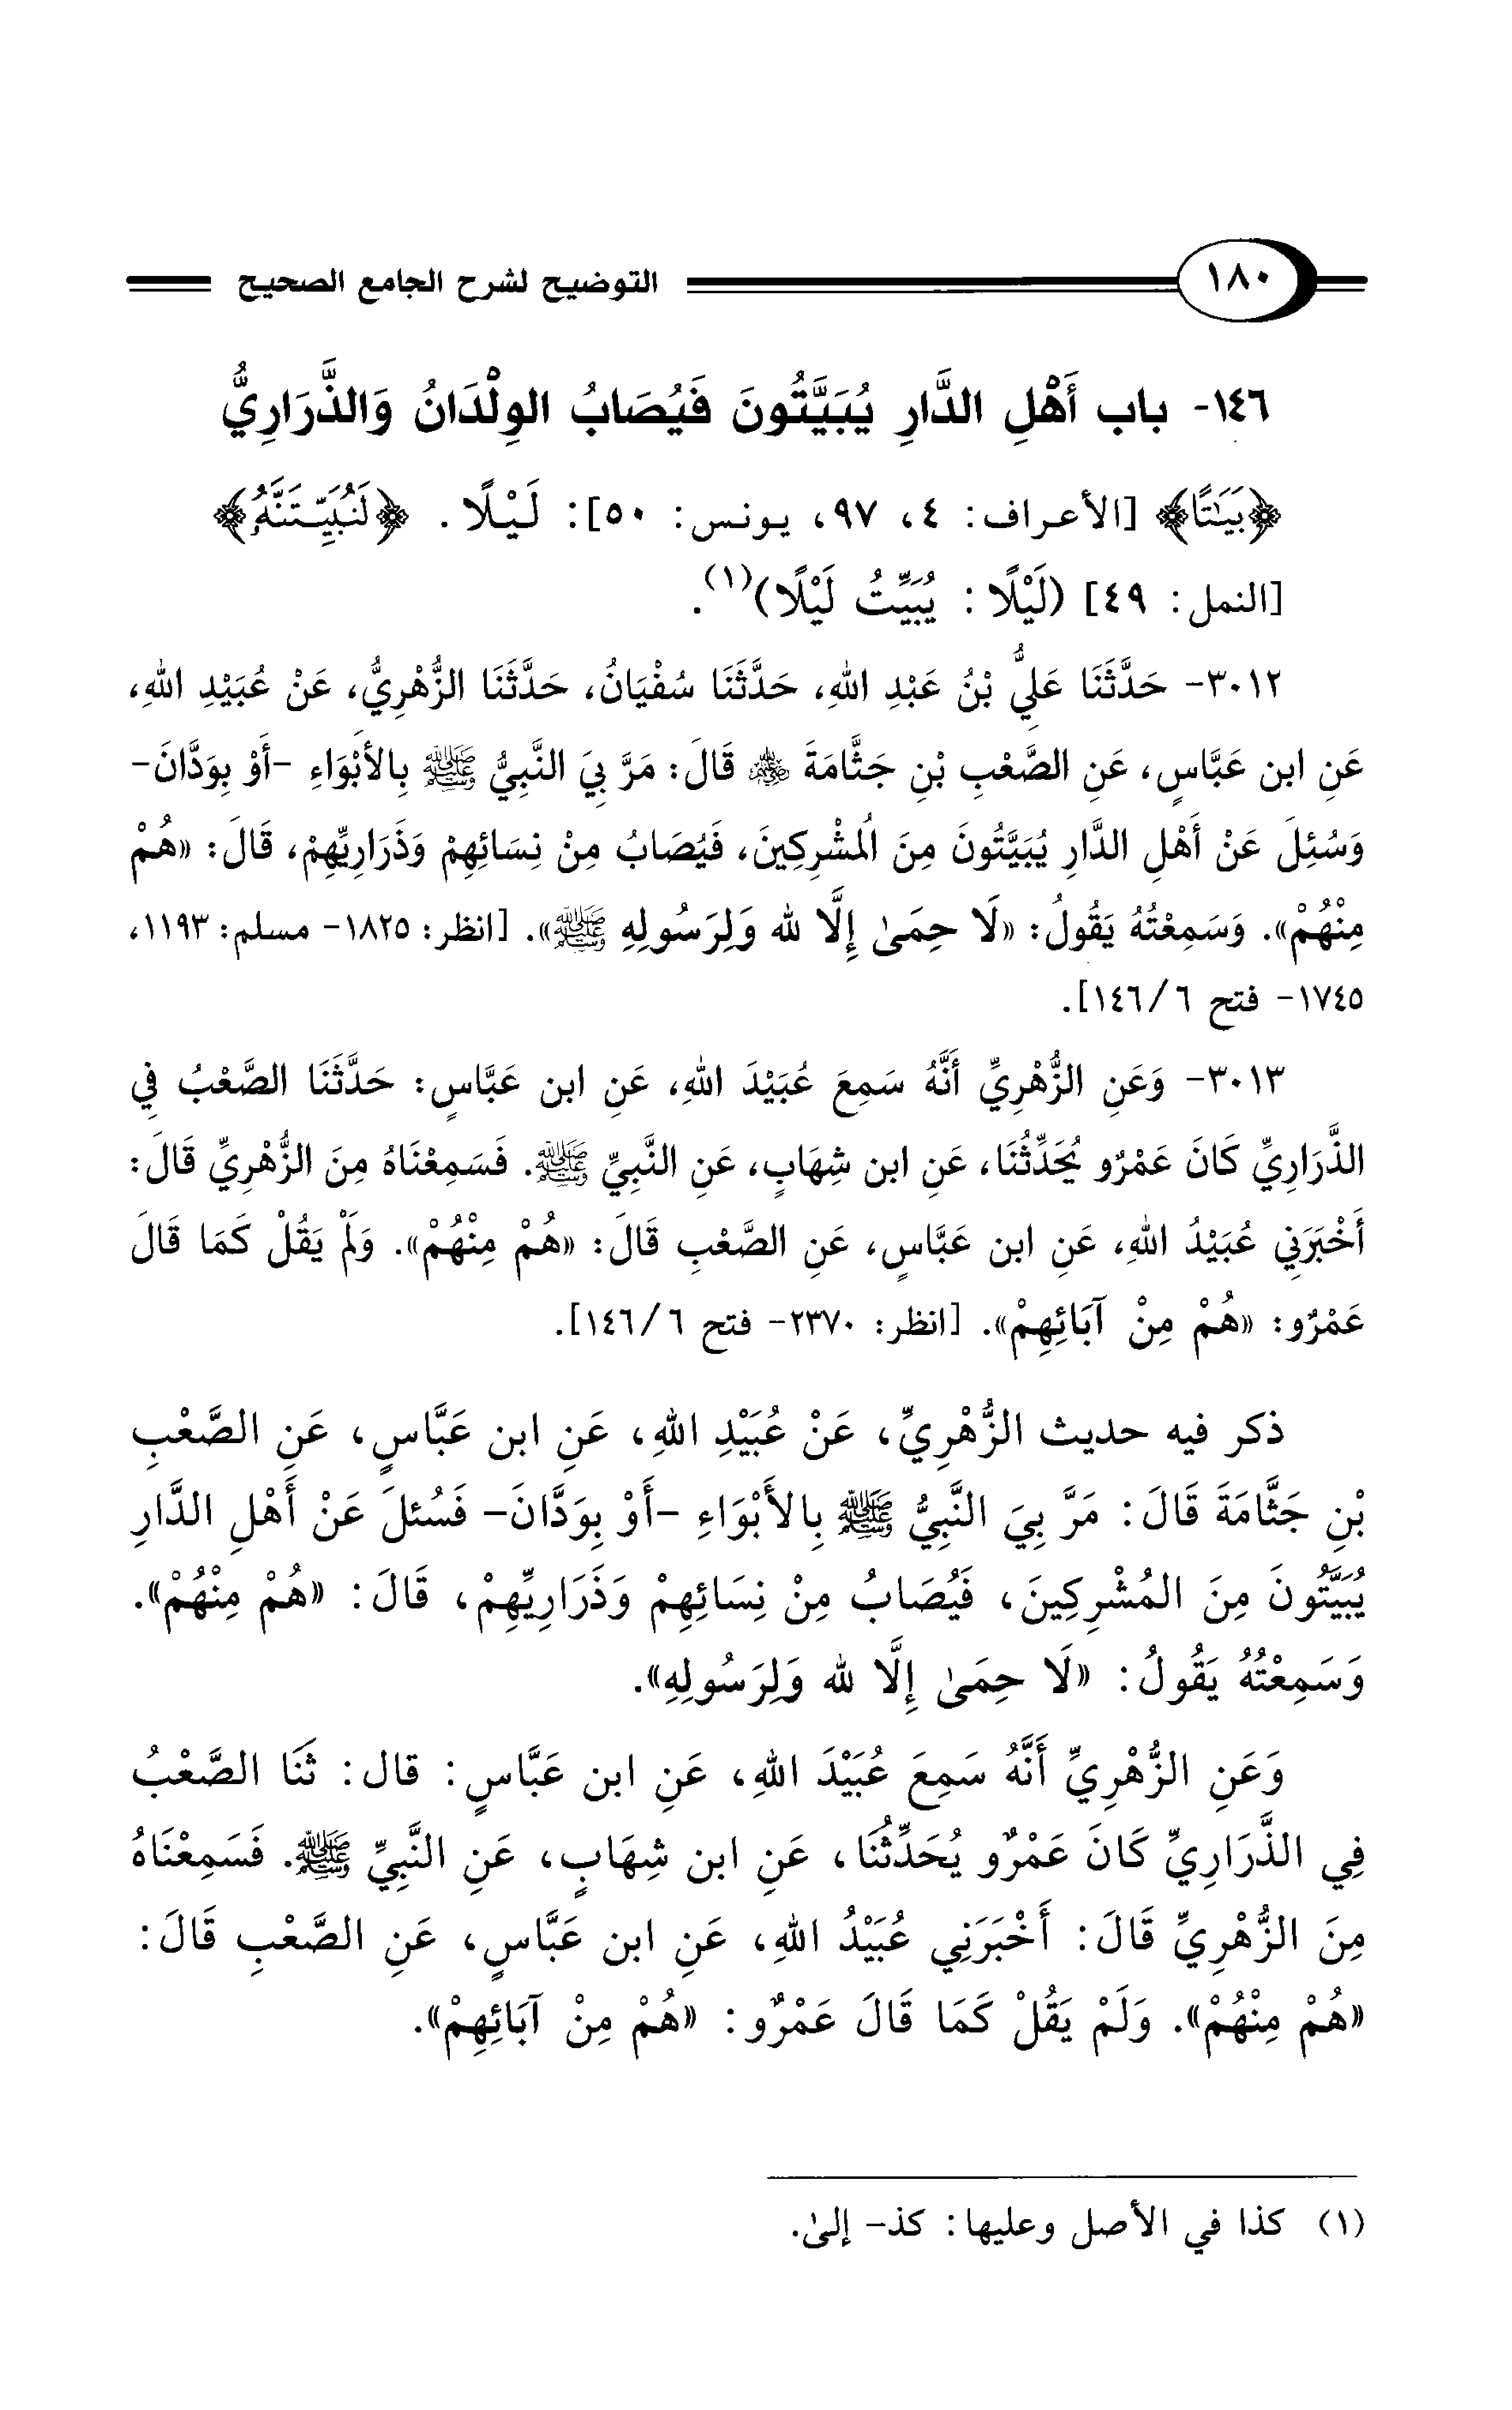 ١٨٠ التوضيح لشرح الجامع الصحيح
١٤٦- باب أَهْلِ الدَّارِ يُبَيَّتُونَ فَيُصَابُ الوِلْدَانُ وَالذَّرَارِيُّ
﴿بَيَٰتًا﴾ [الأعراف: ٤، ٩٧، يونس: ٥٠]: لَيْلًا. ﴿لَنُبَيِّتَنَّهُۥ﴾
[النمل: ٤٩] (لَيْلًا: يُبَيِّتُ لَيْلًا)(١).
٣٠١٢- حَدَّثَنَا عَلِيُّ بْنُ عَبْدِ اللهِ، حَدَّثَنَا سُفْيَانُ، حَدَّثَنَا الزُّهْرِيُّ، عَنْ عُبَيْدِ اللهِ،
عَنِ ابن عَبَّاسٍ، عَنِ الصَّعْبِ بْنِ جَثَّامَةَ رضي الله عنه قَالَ: مَرَّ بِيَ النَّبِيُّ ﷺ بِالأَبْوَاءِ -أَوْ بِوَدَّانَ-
وَسُئِلَ عَنْ أَهْلِ الدَّارِ يُبَيَّتُونَ مِنَ المُشْرِكِينَ، فَيُصَابُ مِنْ نِسَائِهِمْ وَذَرَارِيِّهِمْ، قَالَ: «هُمْ
مِنْهُمْ». وَسَمِعْتُهُ يَقُولُ: «لَا حِمَىٰ إِلَّا لله وَلِرَسُولِهِ ﷺ». [انظر: ١٨٢٥- مسلم: ١١٩٣،
١٧٤٥- فتح ٦/ ١٤٦].
٣٠١٣- وَعَنِ الزُّهْرِيِّ أَنَّهُ سَمِعَ عُبَيْدَ اللهِ، عَنِ ابن عَبَّاسٍ: حَدَّثَنَا الصَّعْبُ فِي
الذَّرَارِيِّ كَانَ عَمْرٌو يُحَدِّثُنَا، عَنِ ابن شِهَابٍ، عَنِ النَّبِيِّ ﷺ. فَسَمِعْنَاهُ مِنَ الزُّهْرِيِّ قَالَ:
أَخْبَرَنِي عُبَيْدُ اللهِ، عَنِ ابن عَبَّاسٍ، عَنِ الصَّعْبِ قَالَ: «هُمْ مِنْهُمْ». وَلَمْ يَقُلْ كَمَا قَالَ
عَمْرٌو: «هُمْ مِنْ آبَائِهِمْ». [انظر: ٢٣٧٠- فتح ٦/ ١٤٦].
ذكر فيه حديث الزُّهْرِيِّ، عَنْ عُبَيْدِ اللهِ، عَنِ ابن عَبَّاسٍ، عَنِ الصَّعْبِ
بْنِ جَثَّامَةَ قَالَ: مَرَّ بِيَ النَّبِيُّ ﷺ بِالأَبْوَاءِ -أَوْ بِوَدَّانَ- فَسُئلَ عَنْ أَهْلِ الدَّارِ
يُبَيَّتُونَ مِنَ المُشْرِكِينَ، فَيُصَابُ مِنْ نِسَائِهِمْ وَذَرَارِيِّهِمْ، قَالَ: «هُمْ مِنْهُمْ».
وَسَمِعْتُهُ يَقُولُ: «لَا حِمَىٰ إِلَّا لله وَلِرَسُولِهِ».
وَعَنِ الزُّهْرِيِّ أَنَّهُ سَمِعَ عُبَيْدَ اللهِ، عَنِ ابن عَبَّاسٍ: قال: ثَنَا الصَّعْبُ
فِي الذَّرَارِيِّ كَانَ عَمْرٌو يُحَدِّثُنَا، عَنِ ابن شِهَابٍ، عَنِ النَّبِيِّ ﷺ. فَسَمِعْنَاهُ
مِنَ الزُّهْرِيِّ قَالَ: أَخْبَرَنِي عُبَيْدُ اللهِ، عَنِ ابن عَبَّاسٍ، عَنِ الصَّعْبِ قَالَ:
«هُمْ مِنْهُمْ». وَلَمْ يَقُلْ كَمَا قَالَ عَمْرٌو: «هُمْ مِنْ آبَائِهِمْ».
(١) كذا في الأصل وعليها: كذ- إلىٰ.